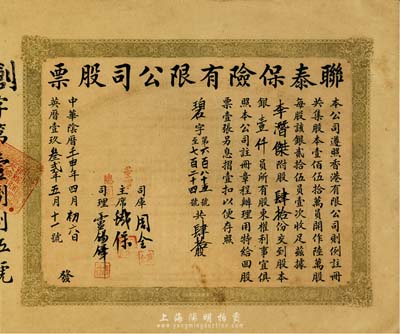 聯泰保險有限公司股票
本公司遵照香港有限公司則例註冊
共集股本壹佰伍拾萬員開作陸萬股
每股該銀貳拾伍員壹次收足茲據
李濟傑附股肆拾份交到股本
銀壹仟員所有股東權利事宜俱
照本公司註冊章程辦理用特給回股
票壹張另息摺壹扣以便存照
碧字第六百八十五號至七百二十四號共肆拾股
司庫周全
主席
司理
中華陰曆壬申年四月初六日
英曆壹玖叁貳年五月十一號
發
創字第壹捌捌伍號
上海阳明拍卖
www.yangmingauction.com